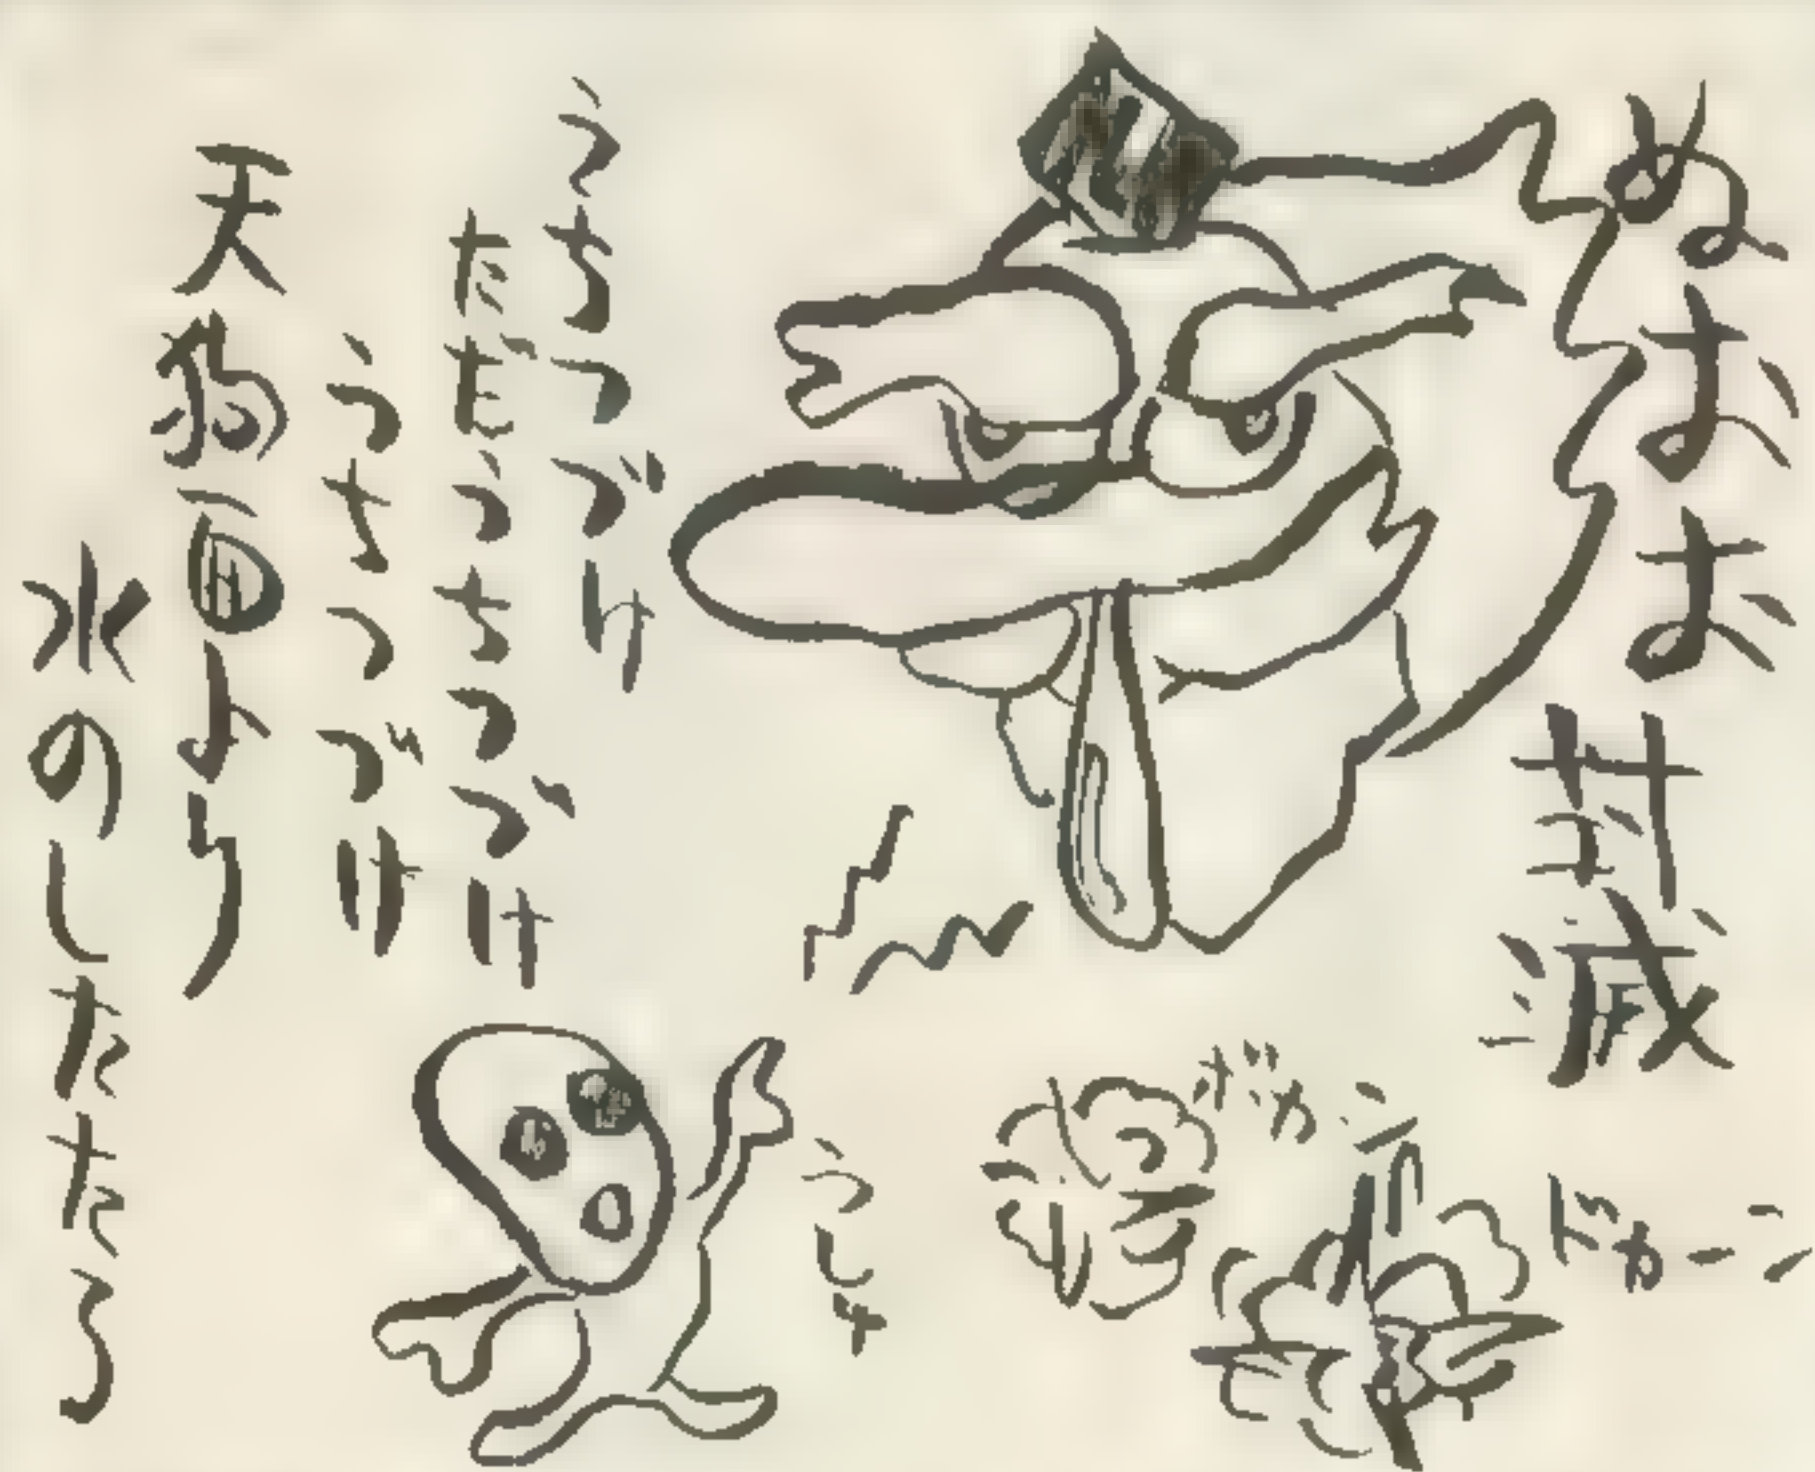 ぬおお
うちつづけ
ただうちつづけ
うちつづけ
天狗面より
水のしたたる
ボカン
ドカーン
うしょ